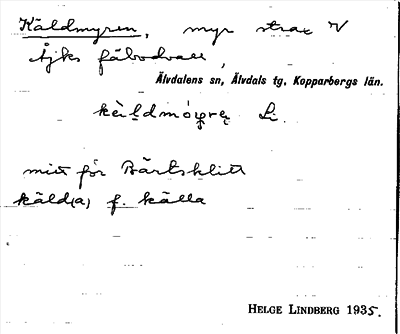 Käldmyren, myr strax V
Åjks fäbodvall,
Älvdalens sn, Älvdals tg, Kopparbergs län.
Li.
mitt för Bärtsklitt
käld(a) f. källa
HELGE LINDBERG 1935.